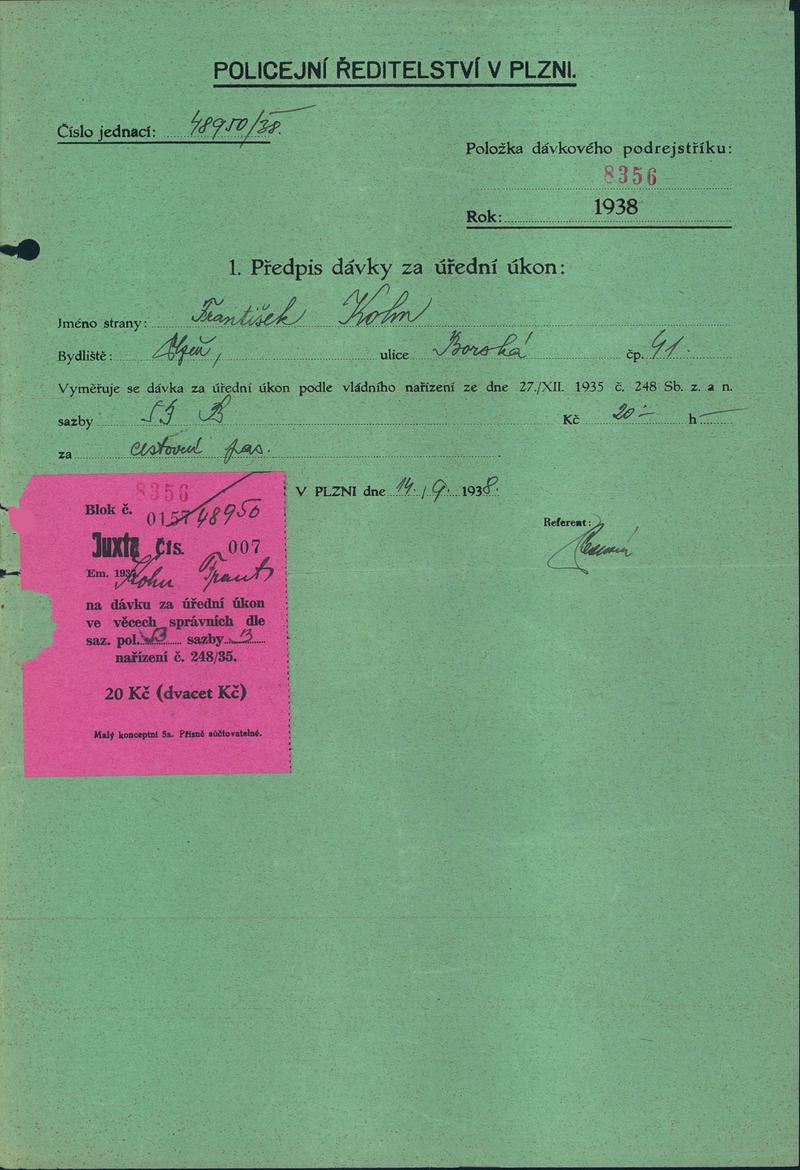 POLICEJNÍ ŘEDITELSTVÍ V PLZNI.
Číslo jednací: 48950/38.
Položka dávkového podrejstříku:
8356
Rok: 1938
1. Předpis dávky za úřední úkon:
Jméno strany: František Kohn
Bydliště: Plzeň, ulice Borská čp. 41.
Vyměřuje se dávka za úřední úkon podle vládního nařízení ze dne 27./XII. 1935 č. 248 Sb. z. a n.
sazby B Kč 20.- h —
za cestovní pas.
V PLZNI dne 14./9. 1938.
Referent:
8356
Blok č. 0157 48950
Juxta čís. 007
Em. 193
Kohn Frant
na dávku za úřední úkon
ve věcech správních dle
saz. pol. sazby B
nařízení č. 248/35.
20 Kč (dvacet Kč)
Malý konceptní 5a. Přísně súčtovatelné.